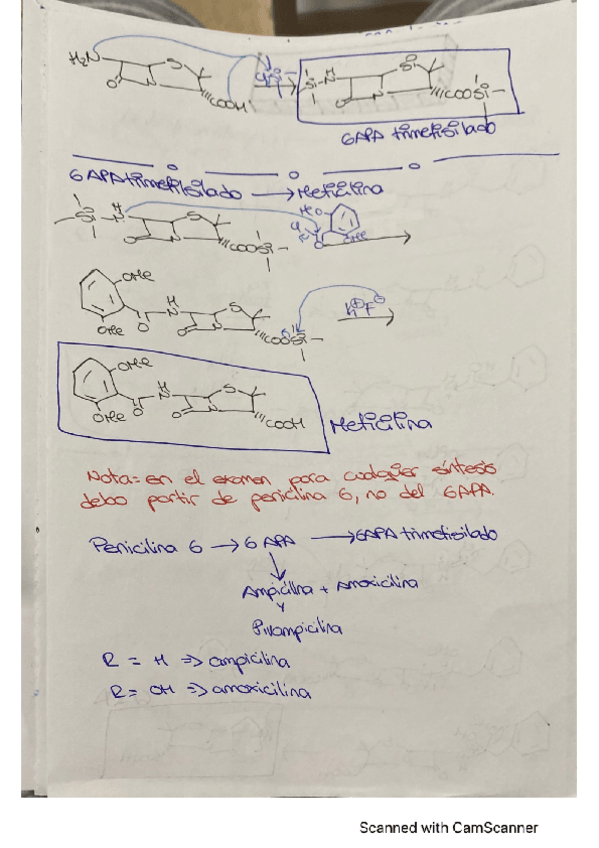 H₂N S COOH Cl-Si- Si-NH S COOSi-
O N
6APA trimetilsililado
6APA trimetilsililado → Meticilina
Si-N H S MeO
O N COOSi Cl O OMe
OMe
H
N S
OMe O O N COOSi H⊕F⊖
OMe
H
N S
OMe O O N COOH Meticilina
Nota: en el examen para cualquier síntesis
debo partir de penicilina G, no del 6APA.
Penicilina G → 6 APA → 6APA trimetisilado
Ampicilina + Amoxicilina
y
Pivampicilina
R = H => ampicilina
R = OH => amoxicilina
Scanned with CamScanner